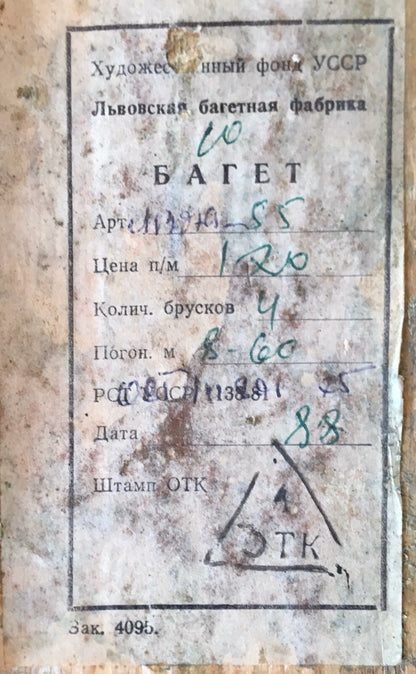 Художественный фонд УССР
Львовская багетная фабрика
10
БАГЕТ
Арт. 55
Цена п/м 1-20
Колич. брусков 4
Погон. м 8-60
РСТ УССР 1138-81
Дата 88
Штамп ОТК
ОТК
Зак. 4095.